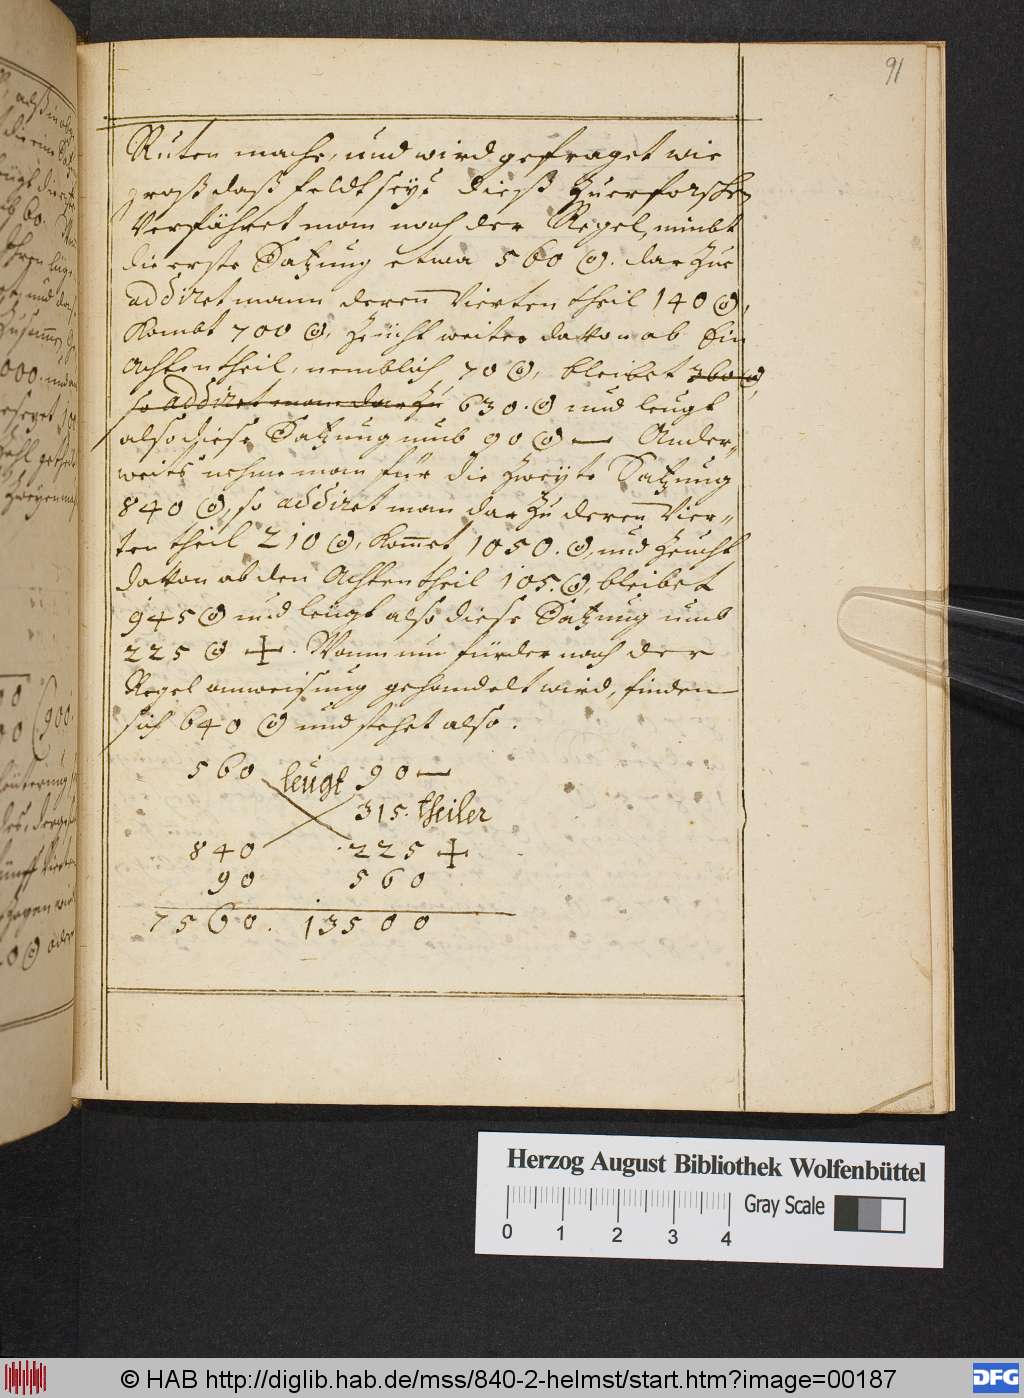 91
Ruten mache, und wird gefraget wie
groß daß feldt seye dieß Zuerforschen
Verfähret man nach der Regel, nimbt
die erste Satzung etwa 560 ⓥ. dar Zue
addiret mann deren Vierten theil 140 ⓥ,
Kombt 700 ⓥ, Zeücht weiter davon ab Ein
Achten theil, nemblich 70 ⓥ, bleibet 360 ⓥ,
so addiret man dar Zu 630. ⓥ und leugt
also diese Satzung umb 90 ⓥ — Ander„
weits nehme man für die Zweyte Satzung
840 ⓥ, so addiret man dar Zu deren Vier„
ten theil 210 ⓥ, Kom̄et 1050. ⓥ, und Zeucht
davon ab den Achten theil 105. ⓥ, bleibet
945 ⓥ und leügt also diese Satzung umb
225 ⓥ +. Wann nun fürder nach der
Regel anweisung gehandelt wird, finden
sich 640 ⓥ und stehet also.
560 leügt 90 —
315. theiler
840 225 +
90 560
7560. 13500
Herzog August Bibliothek Wolfenbüttel
0 1 2 3 4
Gray Scale
© HAB http://diglib.hab.de/mss/840-2-helmst/start.htm?image=00187
DFG